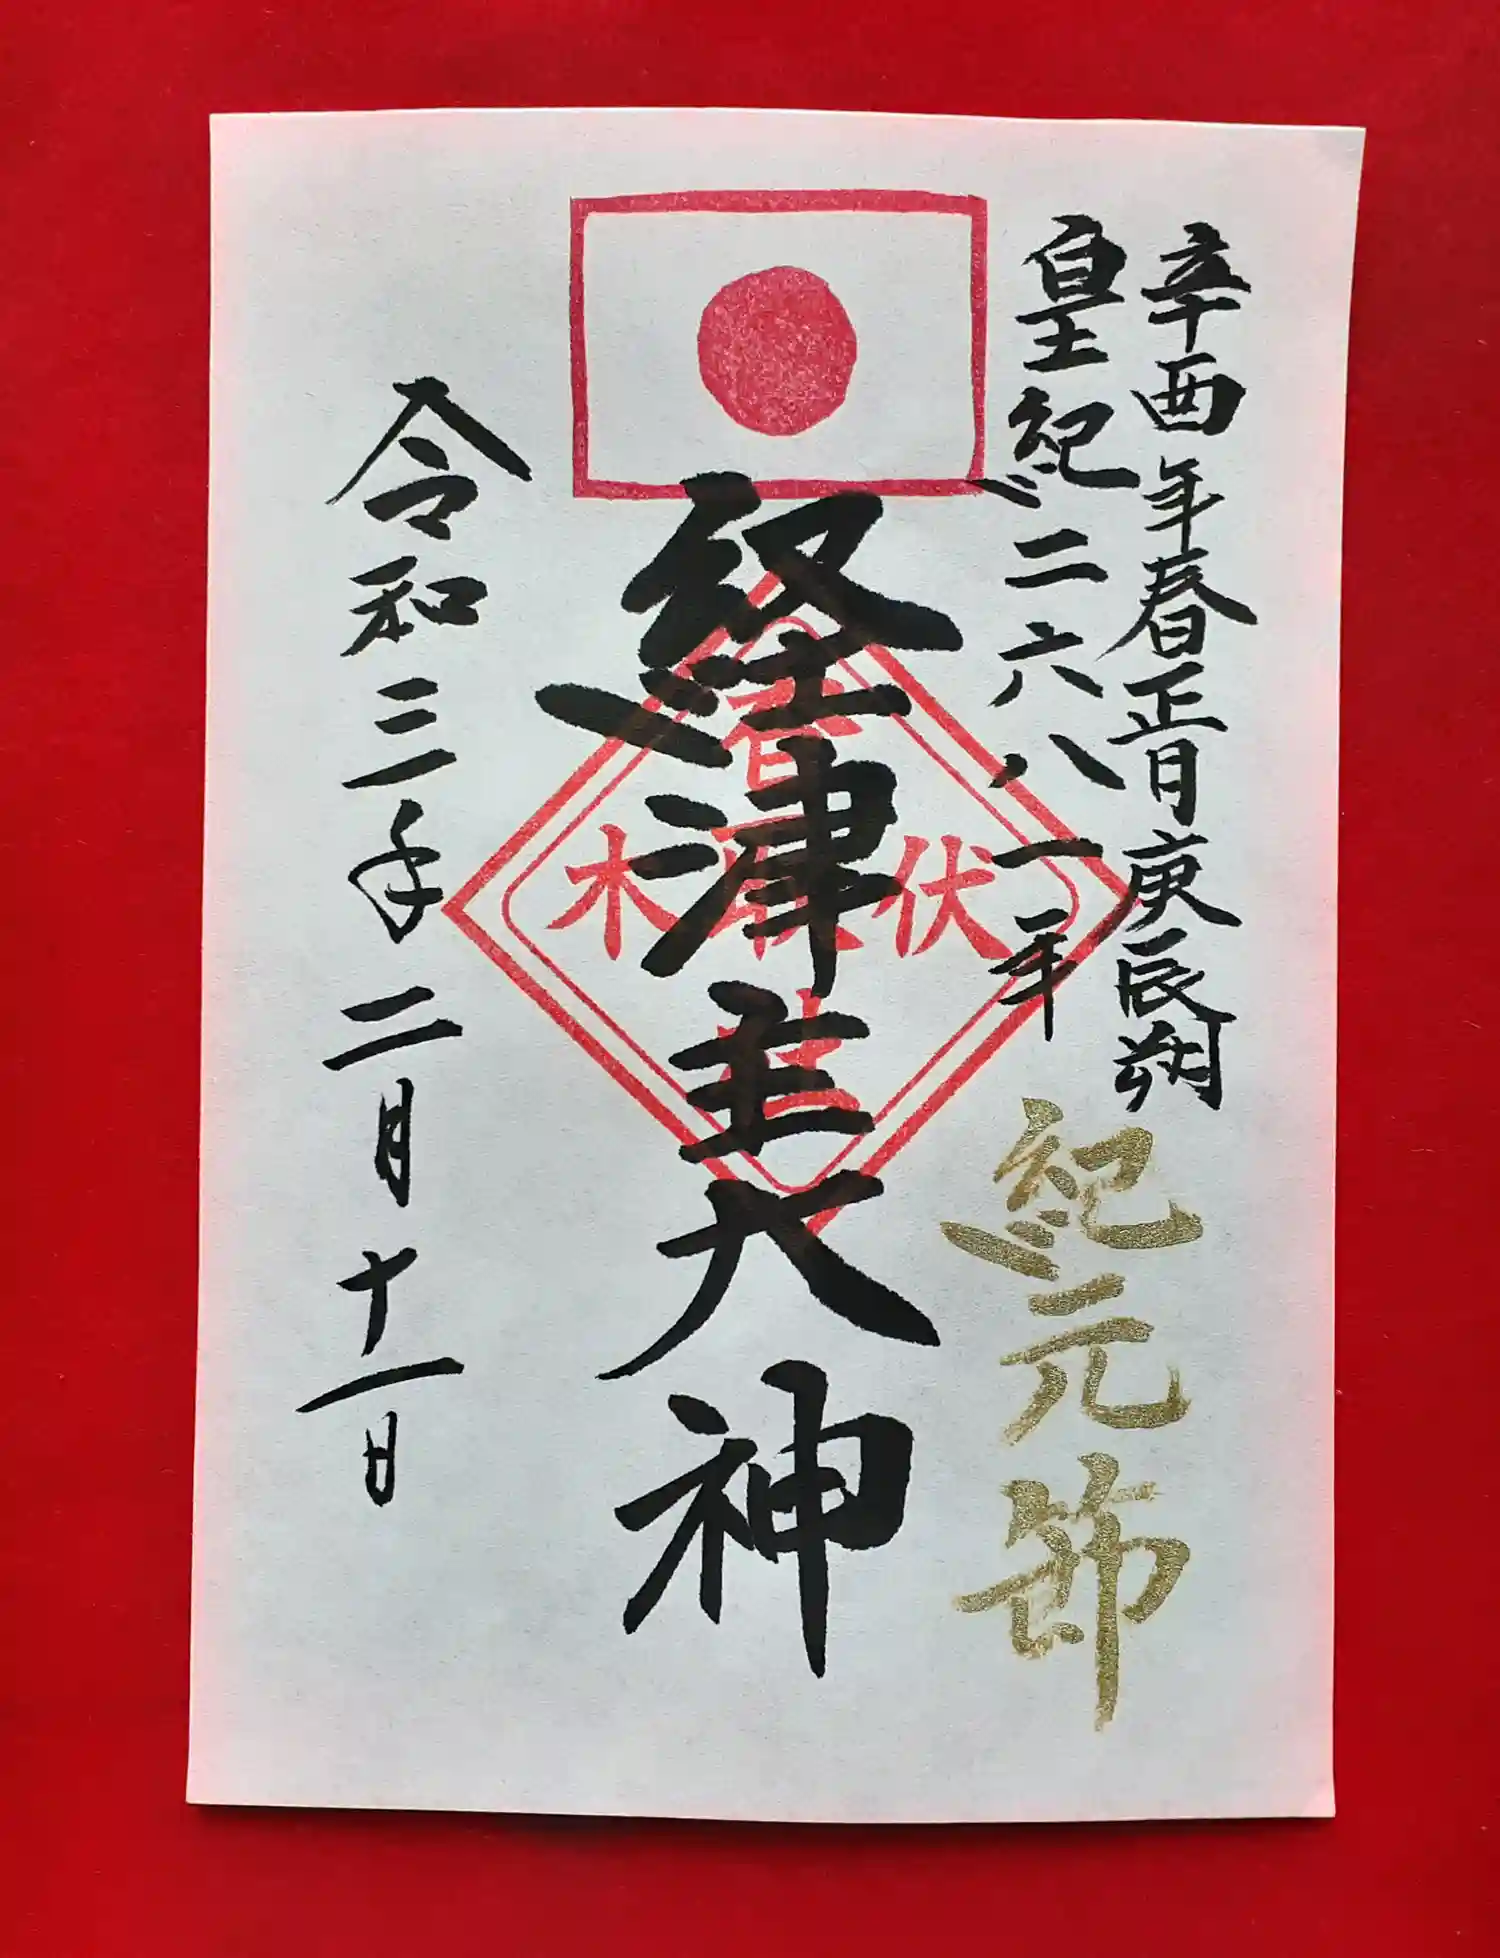 辛酉年春正月庚辰朔
皇紀二六八一年
紀元節
経津主大神
春
伏
木
令和三年二月十一日